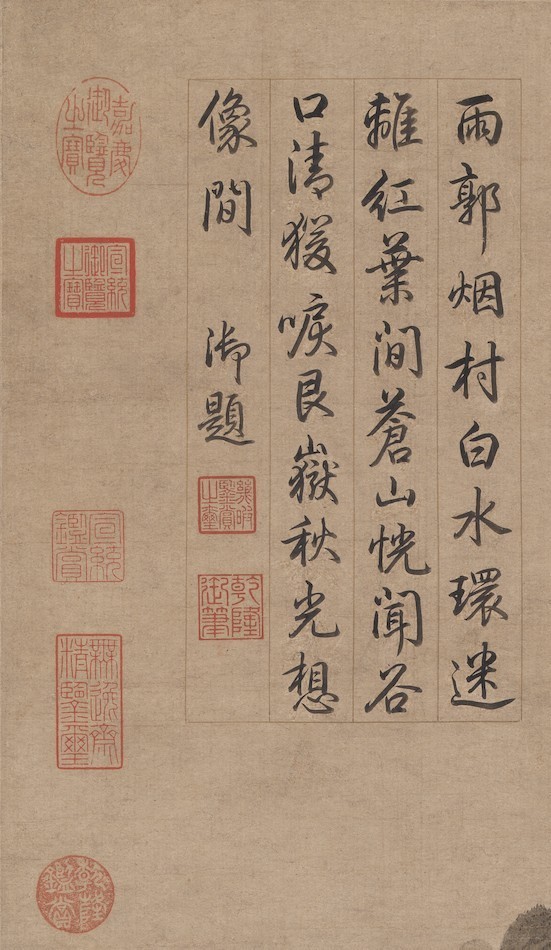 雨郭烟村白水環迷
離紅葉間蒼山恍聞谷
口清猨唳艮嶽秋光想
像間 御題
幾暇鑒賞之璽
乾隆御筆
嘉慶御覽之寶
宣統御覽之寶
宣統鑑賞
無逸齋精鑒璽
乾隆鑑賞